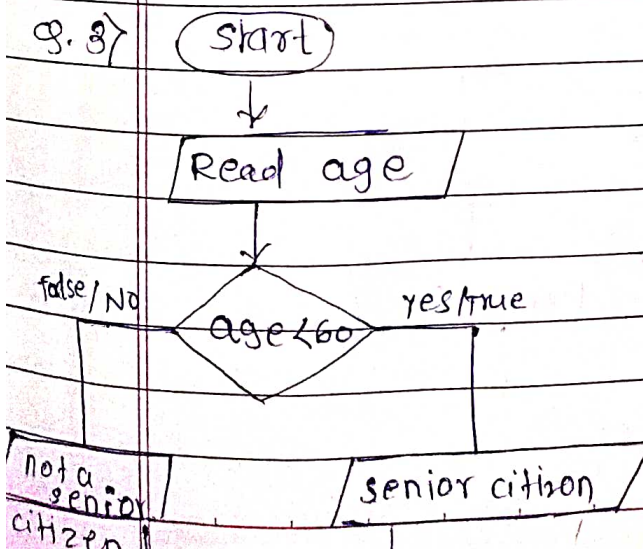 Q. 3>
Start
Read age
false/No
yes/true
age<60
not a
senior
citizen
senior citizon